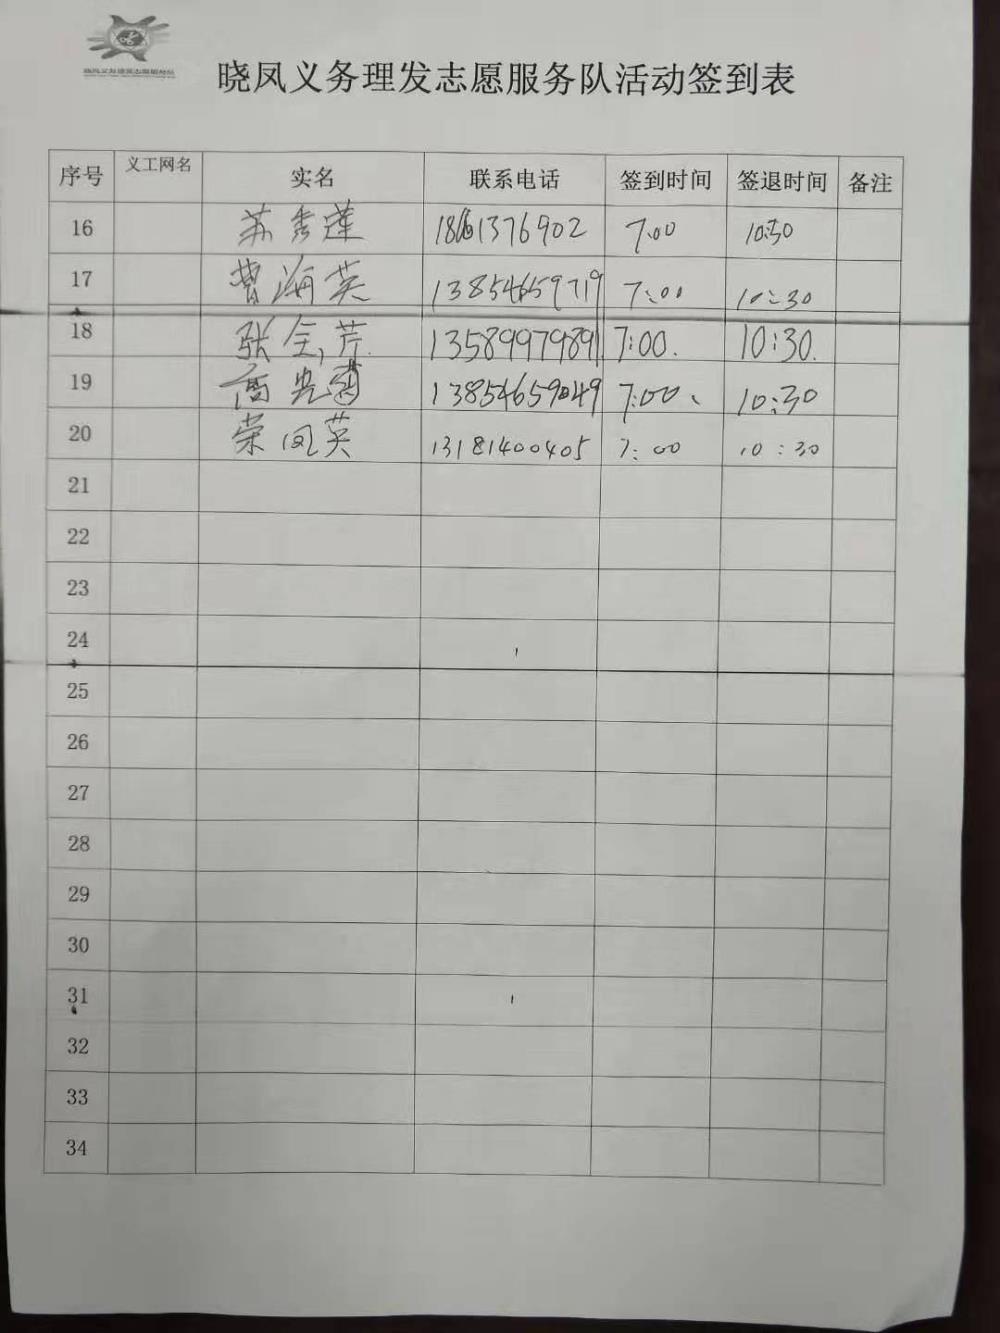 晓凤义务理发志愿服务队
晓凤义务理发志愿服务队活动签到表
序号 义工网名 实名 联系电话 签到时间 签退时间 备注
16 苏秀莲 18661376902 7:00 10:30
17 曹海英 13854659719 7:00 10:30
18 张全芹 13589979891 7:00. 10:30.
19 高光菊 13854659049 7:00、 10:30
20 荣凤英 13181400405 7:00 10:30
21
22
23
24
25
26
27
28
29
30
31
32
33
34